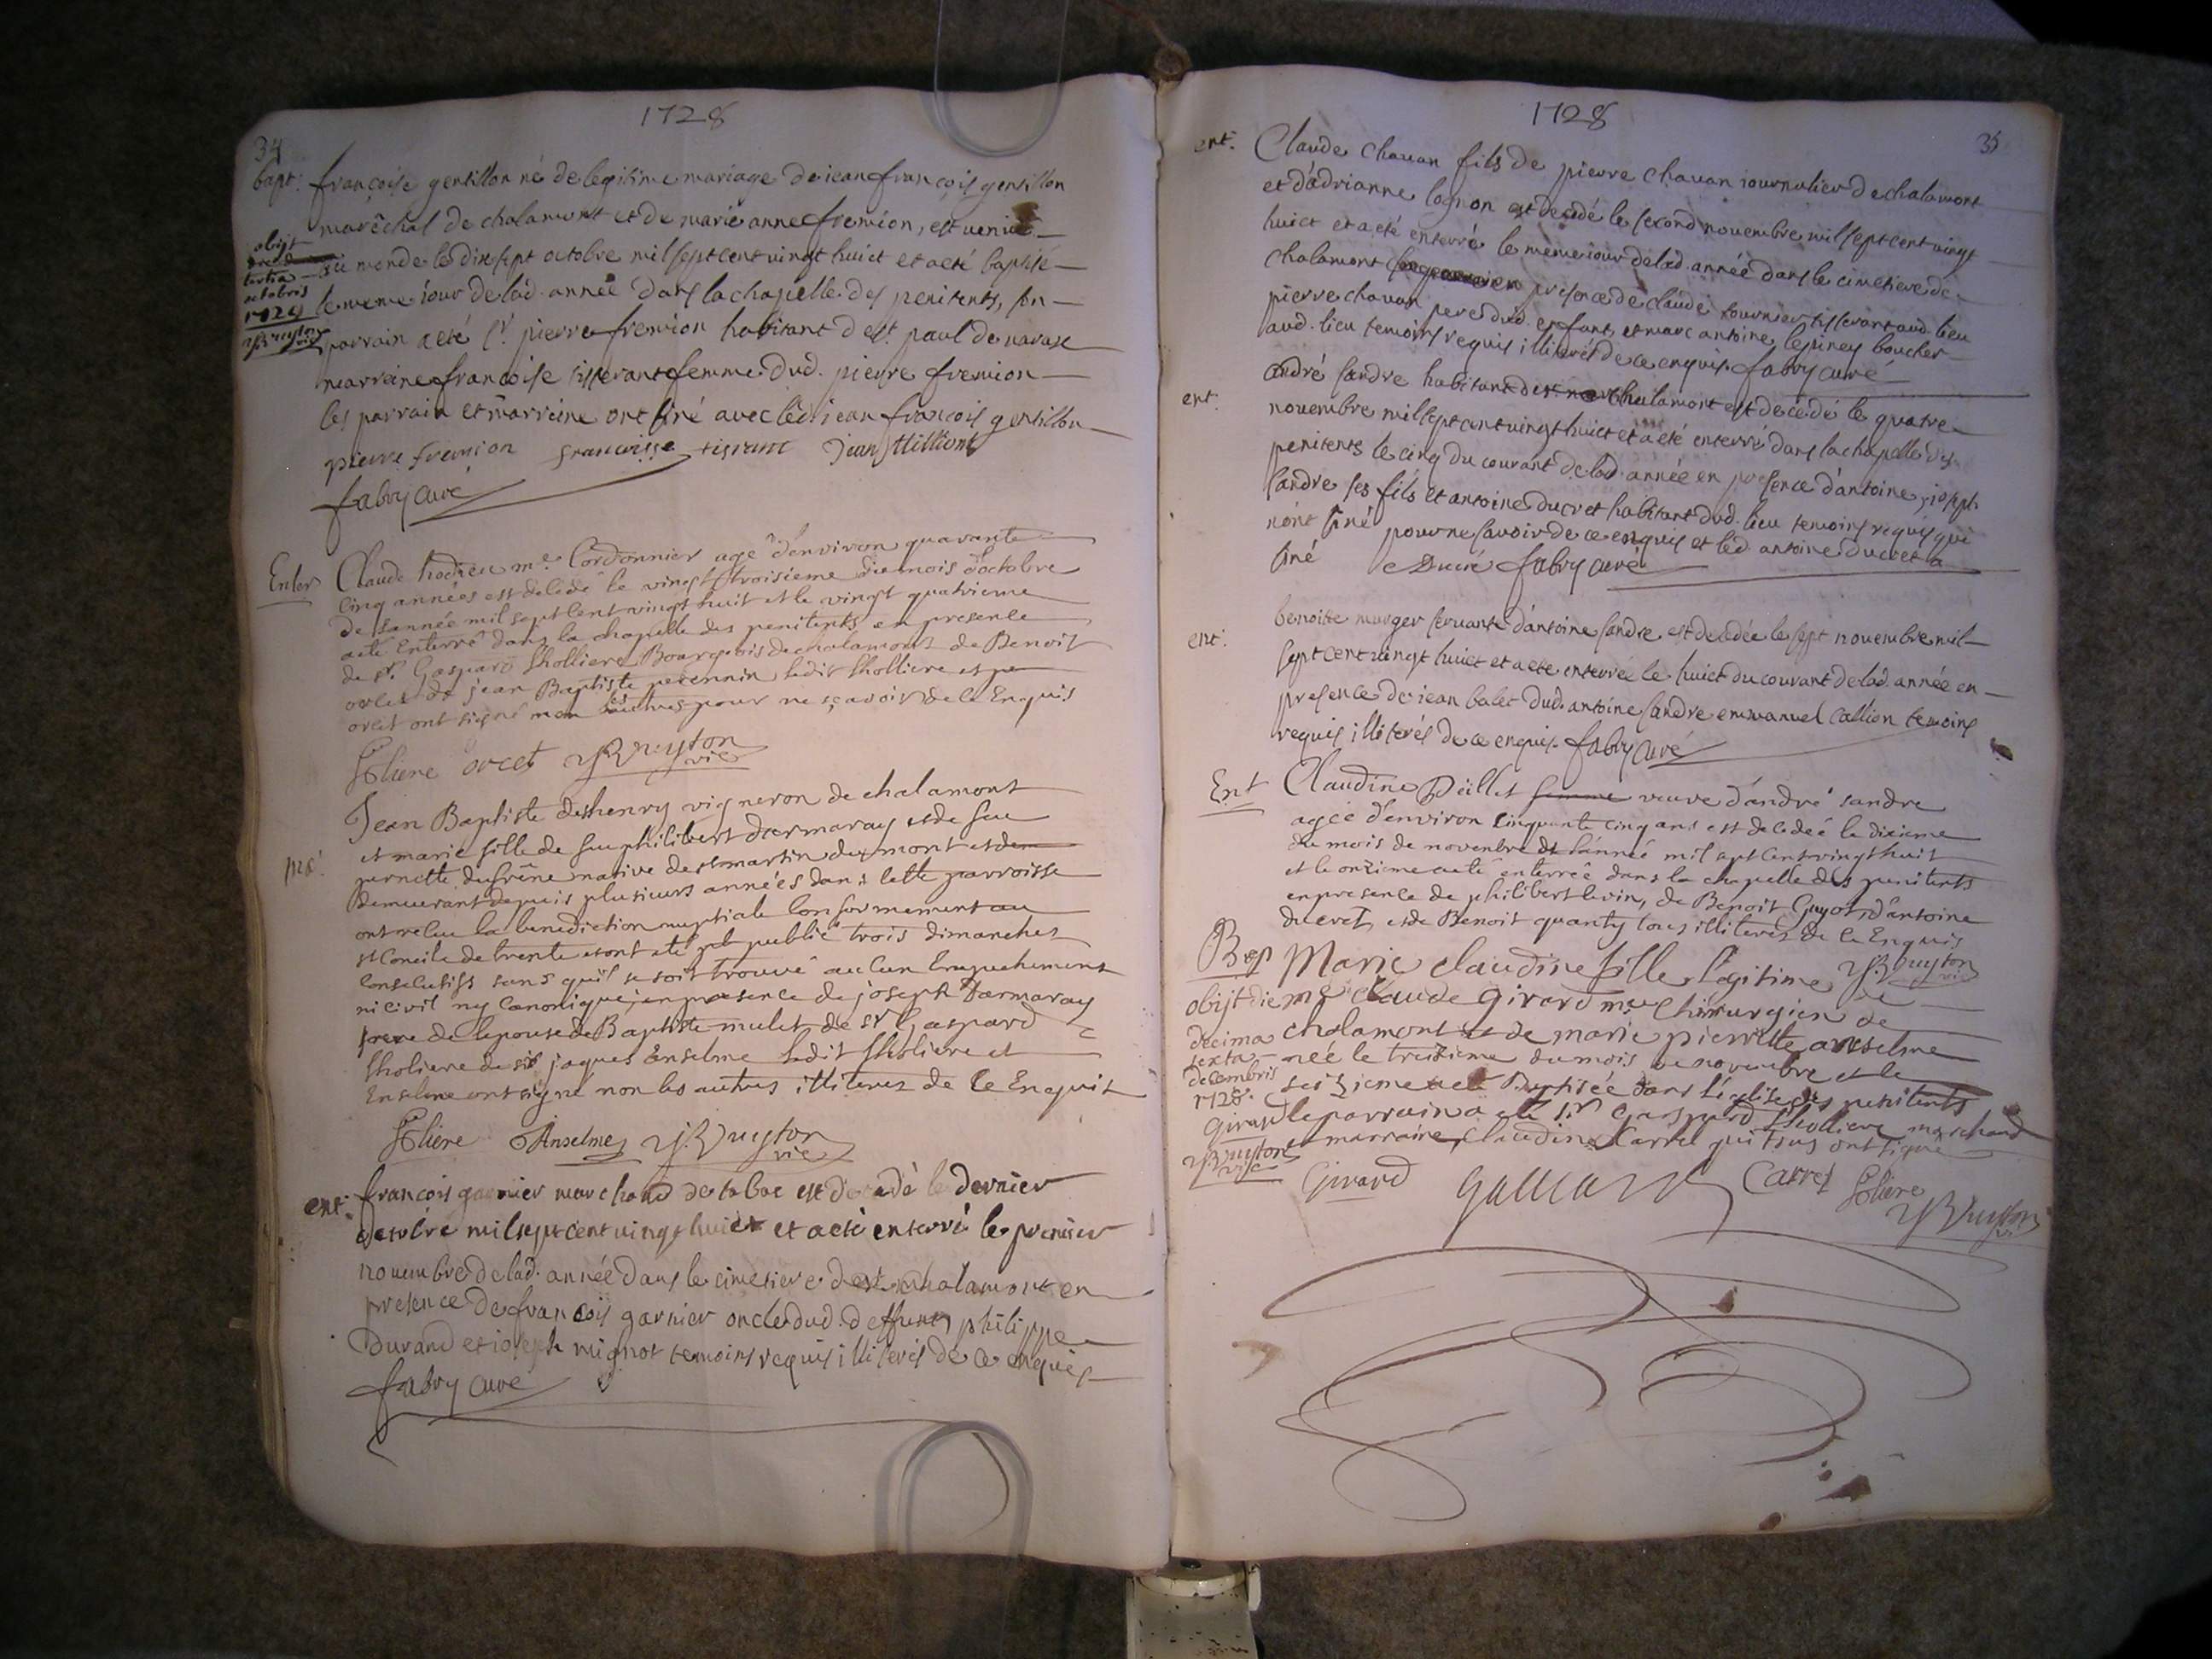 1728
34
bapt: françoise gentillon né de legitime mariage de jean françois gentillon
marêchal de chalamont et de marie anne fremion, est venüe
au monde le dix sept octobre mil sept cent vingt huict et a eté baptisé
le meme jour de lad. année dans la chapelle des penitents, son
parrain a eté Sr. pierre fremion habitant de st. paul de varax
marreine françoise tisserant femme dud. pierre fremion
les parrain et marreine ont siné avec led. jean françois gentillon
obijt
tertia
octobris
1729
JB ruyton
vic
pierre fremion francoisse tisrant Jean
fabry curé
Enter Claude hodieu me. Cordonnier agé d'environ quarante
cinq années est décédé le vingt troisieme du mois d'octobre
de l'année mil sept cent vingt huit et le vingt quatrieme
a eté Enterré dans la chapelle des penitents en presence
de sr. Gaspard Lholliere Bourgeois de chalamont de Benoit
orcet de jean Baptiste perennin ledit Lholliere et
orcet ont signé non autres pour ne sçavoir de ce Enquis
Lholiere orcet JB ruyton
vic
Jean Baptiste deshenry vigneron de chalamont
et marie fille de feu philibert darmaray et de feu
mé. pernette dufrêne native de st martin du mont et
demeurant depuis plusieurs années dans cette parroisse
ont reçu la benediction nuptiale conformement au
st Concile de trente et ont eté publié trois dimanches
consecutifs sans qu'il se soit trouvé aucun Empechement
ni civil ny canonique, en presence de joseph darmaray
frere de lepouse de Baptiste mulet de sr Gaspard
Lholiere de sr jaques Enselme ledit Lholiere et
Enselme ont signé non les autres illiteres de ce Enquis
Lholiere Anselme JB ruyton
vic
ent: françois garnier marchand de tabac est decedé le dernier
octobre mil sept cent vingt huict et a eté enterré le premier
novembre de lad. année dans le cimetiere de chalamont en
presence de françois garnier oncle dud. deffunt, philippe
Durand et joseph mignot temoins requis illiterés de ce enquis
fabry curé
1728
35
ent: Claude chavan fils de pierre chavan journalier de chalamont
et d'adrianne est decedé le second novembre mil sept cent vingt
huict et a eté enterré le meme jour de lad. année dans le cimetiere de
chalamont presence de claude tournier tisserant aud. lieu
pierre chavan pere dud. enfant, et marc antoine lepiney boucher
aud. lieu temoins requis illiterés de ce enquis. fabry curé
ent: andré sandre habitant de chalamont est decédé le quatre
novembre mil sept cent vingt huict et a eté enterré dans la chapelle des
penitents le cinq du courant de lad. année en presence d'antoine, joseph
sandre ses fils et antoine ducret habitant dud. lieu temoins requis qui
n'ont siné pour ne savoir de ce enquis et led. antoine ducret a
siné Ducré fabry curé
ent: benoite murger servante d'antoine sandre est decedée le sept novembre mil
sept cent vingt huict et a eté enterrée le huict du courant de lad. année en
presence de jean balet dud. antoine sandre emmanuel callion temoins
requis illiterés de ce enquis. fabry curé
Ent Claudine Düillet femme veuve d'andré sandre
agée d'environ cinquante cinq ans est decedée le dixieme
du mois de novembre de l'année mil sept cent vingt huit
et le onzieme a eté enterrée dans la chapelle des penitents
en presence de philibert levin, de Benoit Guyot, d'antoine
ducret, et de Benoit quanty tous illiteres de ce Enquis
JB ruyton
vic
Bap Marie claudine fille Legitime de
me claude Girard me Chirurgien de
chalamont et de marie pierrette anselme
née le treizieme du mois de novembre et le
seizieme a eté Baptisée dans l'église des penitents
le parrain a eté sr Gaspard Lholliere marchand
et marraine Claudine Carrel qui tous ont signé
obijt die
decima
sexta
decembris
1728.
Girard
JB ruyton
vic
Girard Carrel Lholiere
JB ruyton
vic